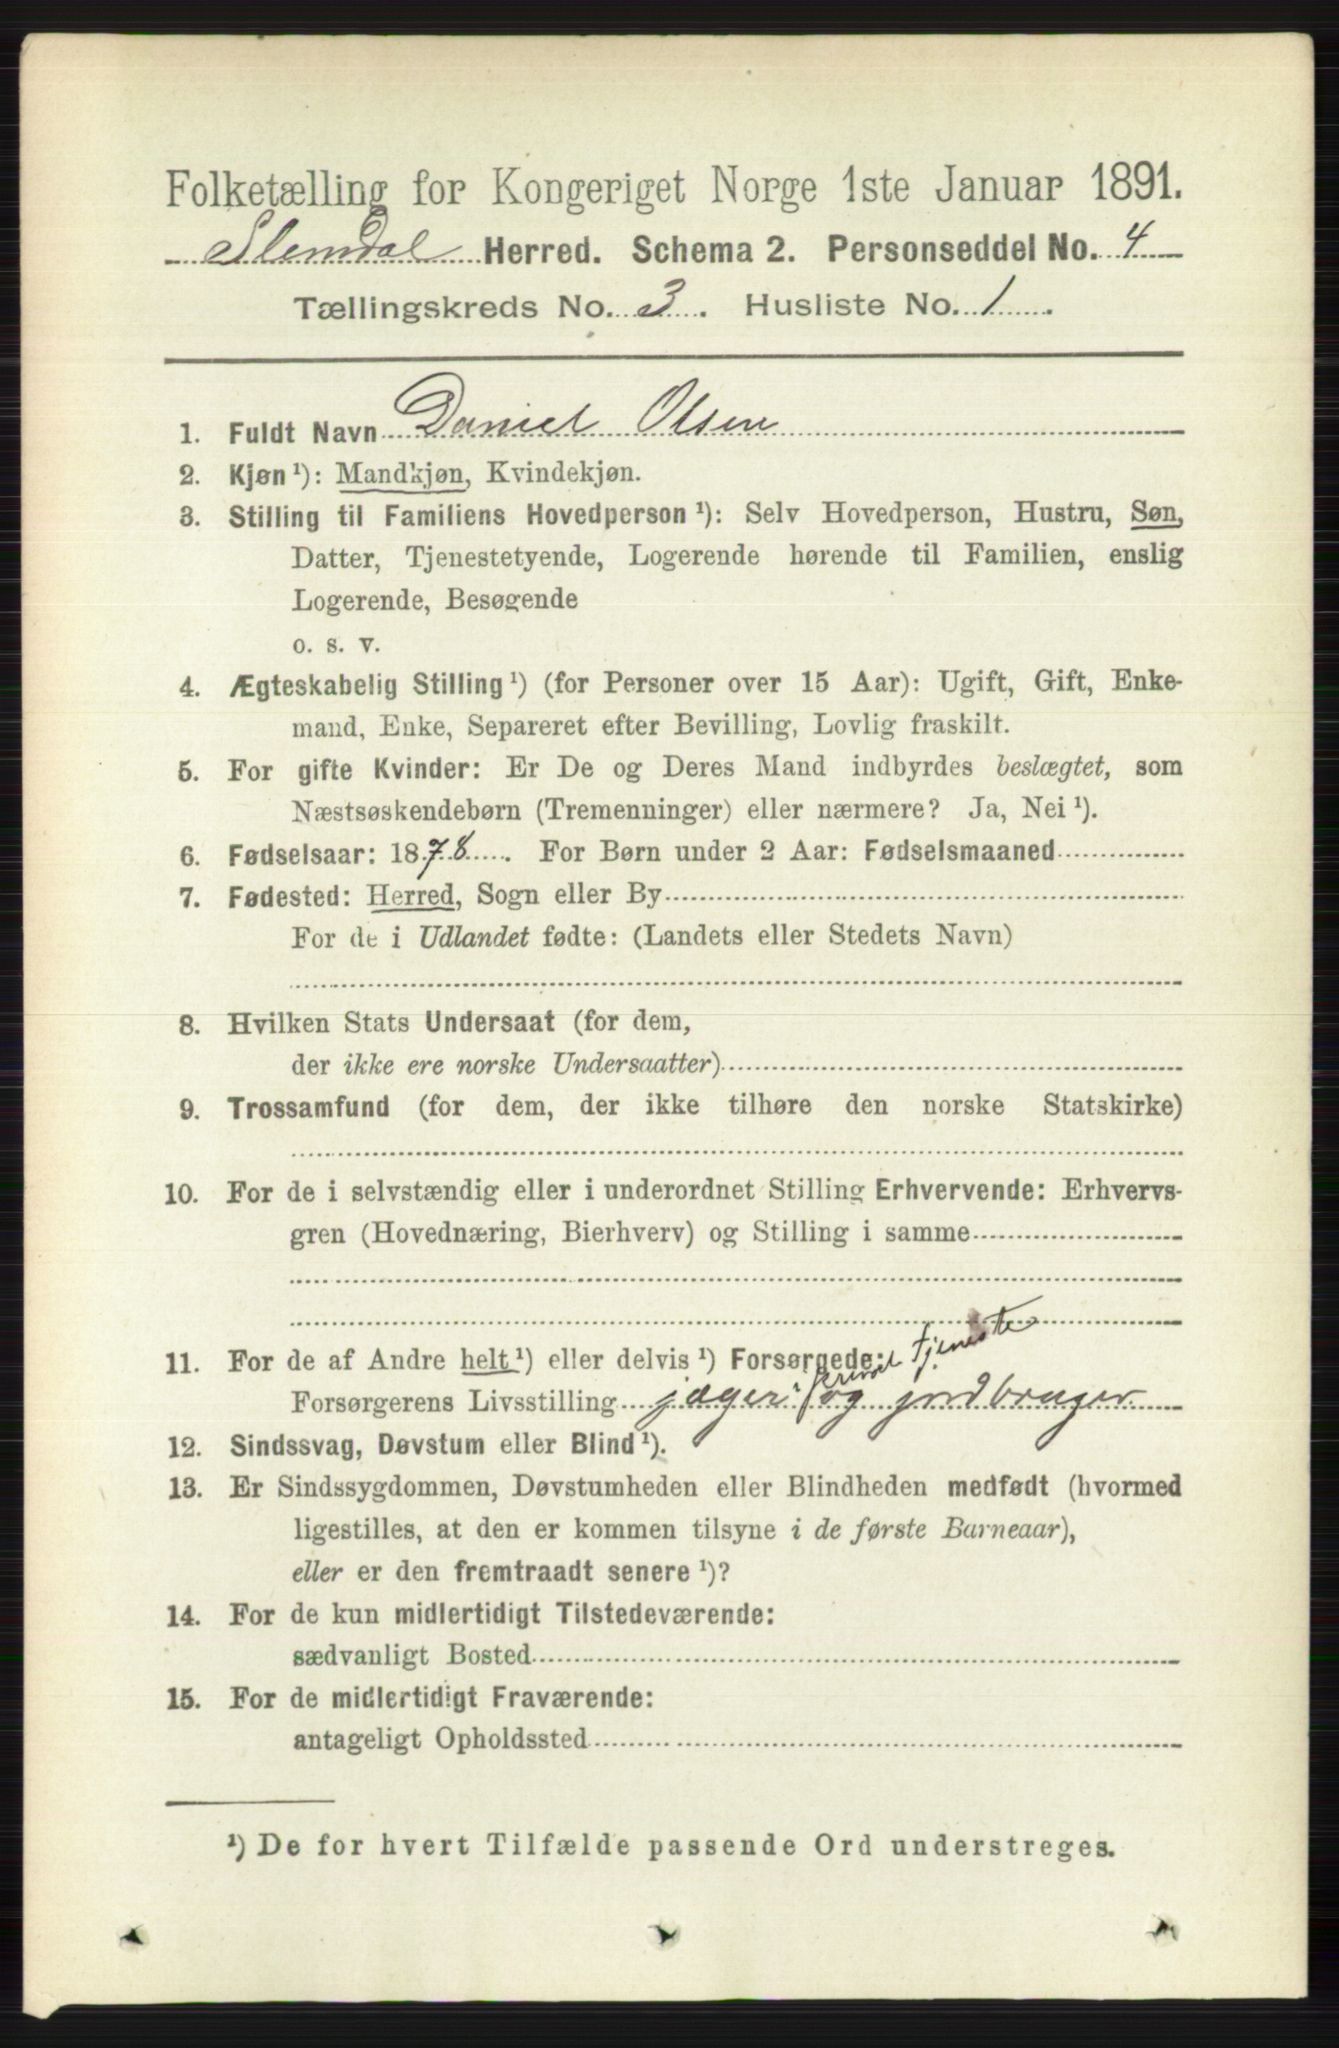 Folketælling for Kongeriget Norge 1ste Januar 1891.
Slemdal Herred. Schema 2. Personseddel No. 4
Tællingskreds No. 3. Husliste No. 1.
1. Fuldt Navn Daniel Olsen
2. Kjøn ¹): Mandkjøn, Kvindekjøn.
3. Stilling til Familiens Hovedperson ¹): Selv Hovedperson, Hustru, Søn,
Datter, Tjenestetyende, Logerende hørende til Familien, enslig
Logerende, Besøgende
o. s. v.
4. Ægteskabelig Stilling ¹) (for Personer over 15 Aar): Ugift, Gift, Enke-
mand, Enke, Separeret efter Bevilling, Lovlig fraskilt.
5. For gifte Kvinder: Er De og Deres Mand indbyrdes beslægtet, som
Næstsøskendebørn (Tremenninger) eller nærmere? Ja, Nei ¹).
6. Fødselsaar: 1878. For Børn under 2 Aar: Fødselsmaaned
7. Fødested: Herred, Sogn eller By
For de i Udlandet fødte: (Landets eller Stedets Navn)
8. Hvilken Stats Undersaat (for dem,
der ikke ere norske Undersaatter)
9. Trossamfund (for dem, der ikke tilhøre den norske Statskirke)
10. For de i selvstændig eller i underordnet Stilling Erhvervende: Erhvervs-
gren (Hovednæring, Bierhverv) og Stilling i samme
11. For de af Andre helt ¹) eller delvis ¹) Forsørgede:
privat tjeneste
Forsørgerens Livsstilling jæger i og jordbruger.
12. Sindssvag, Døvstum eller Blind ¹).
13. Er Sindssygdommen, Døvstumheden eller Blindheden medfødt (hvormed
ligestilles, at den er kommen tilsyne i de første Barneaar),
eller er den fremtraadt senere ¹)?
14. For de kun midlertidigt Tilstedeværende:
sædvanligt Bosted
15. For de midlertidigt Fraværende:
antageligt Opholdssted
¹) De for hvert Tilfælde passende Ord understreges.